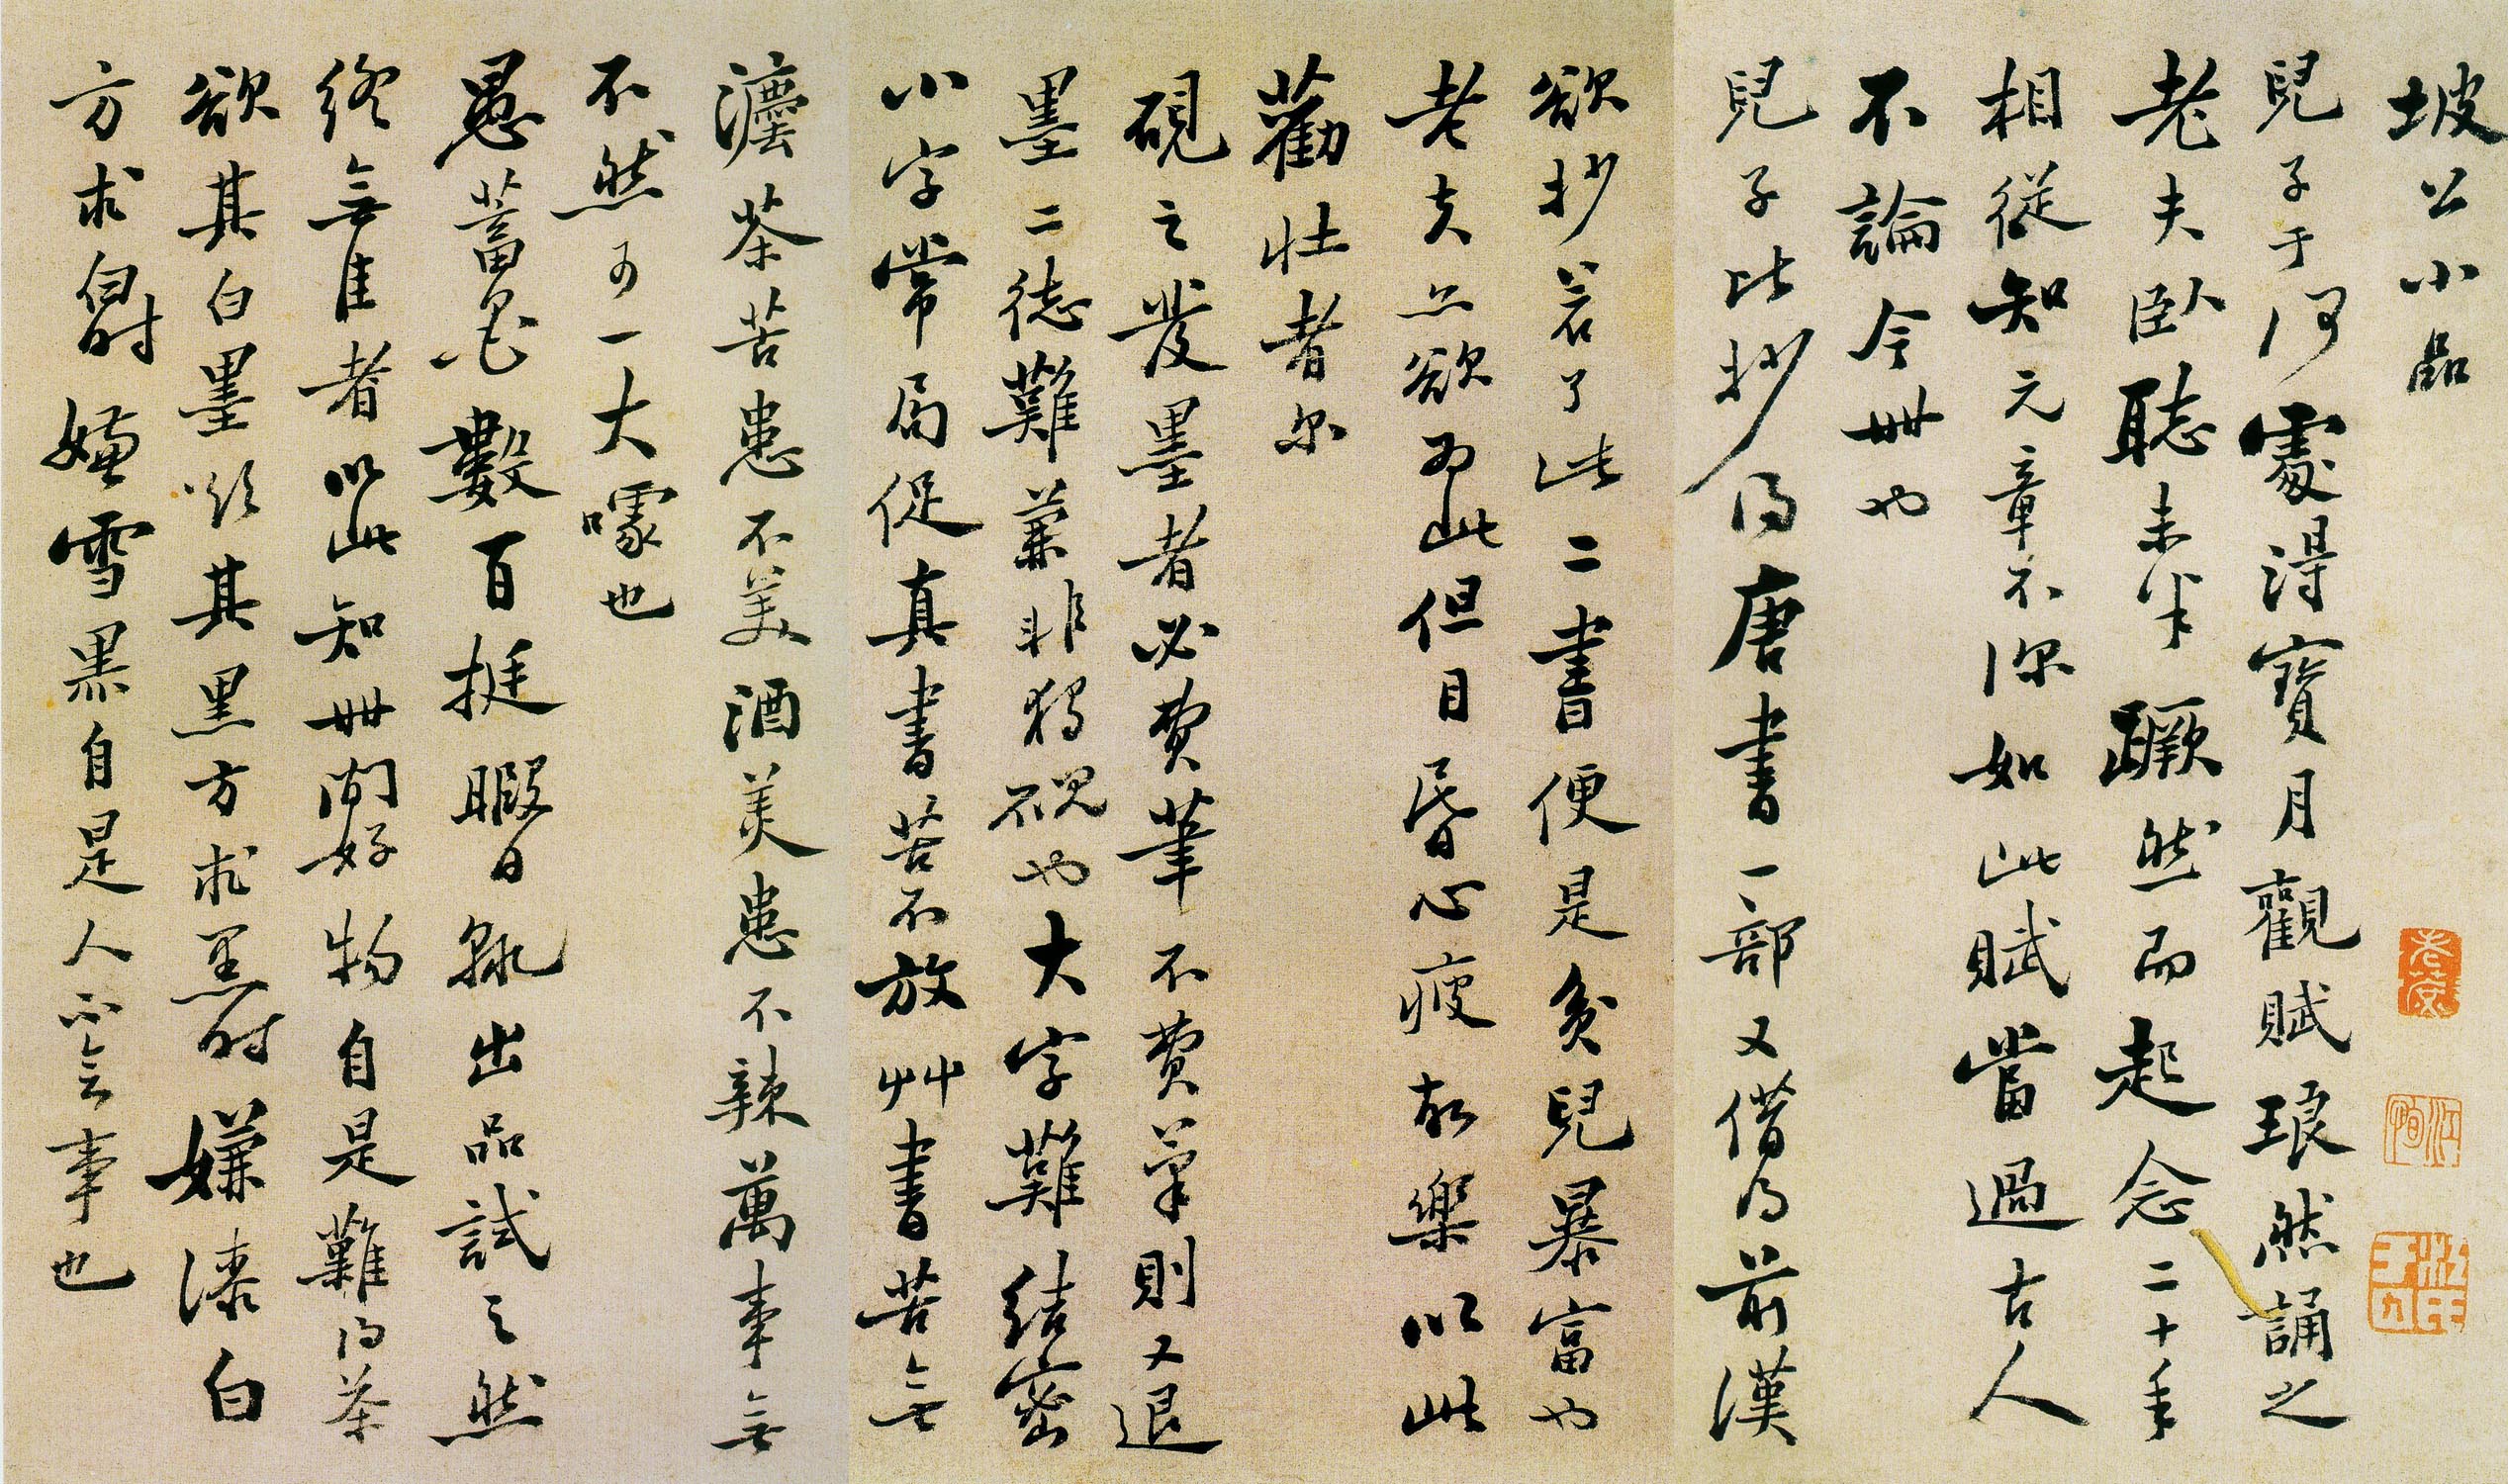 坡公小品
兒子于何處得寶月觀賦琅然誦之
老夫臥聽未半蹶然而起念二十年
相從知元章不深如此賦當過古人
不論今世也
兒子比抄得唐書一部又借得前漢
欲抄若了此二書便是貧兒暴富也
老夫亦欲為此但目昏心疲故樂以此
勸壯者尔
硯之發墨者必費筆不費筆則又退
墨二德難兼非獨硯也大字難結密
小字常局促真書苦不放艸書苦無
灋茶苦患不美酒美患不辣萬事無
不然可一大噱也
愚蓄墨數百挺暇日輒出品試之然
終無佳者以此知世間好物自是難得茶
欲其白墨欲其黑方求黑時嫌漆白
方求白時嫌雪黑自是人不會事也